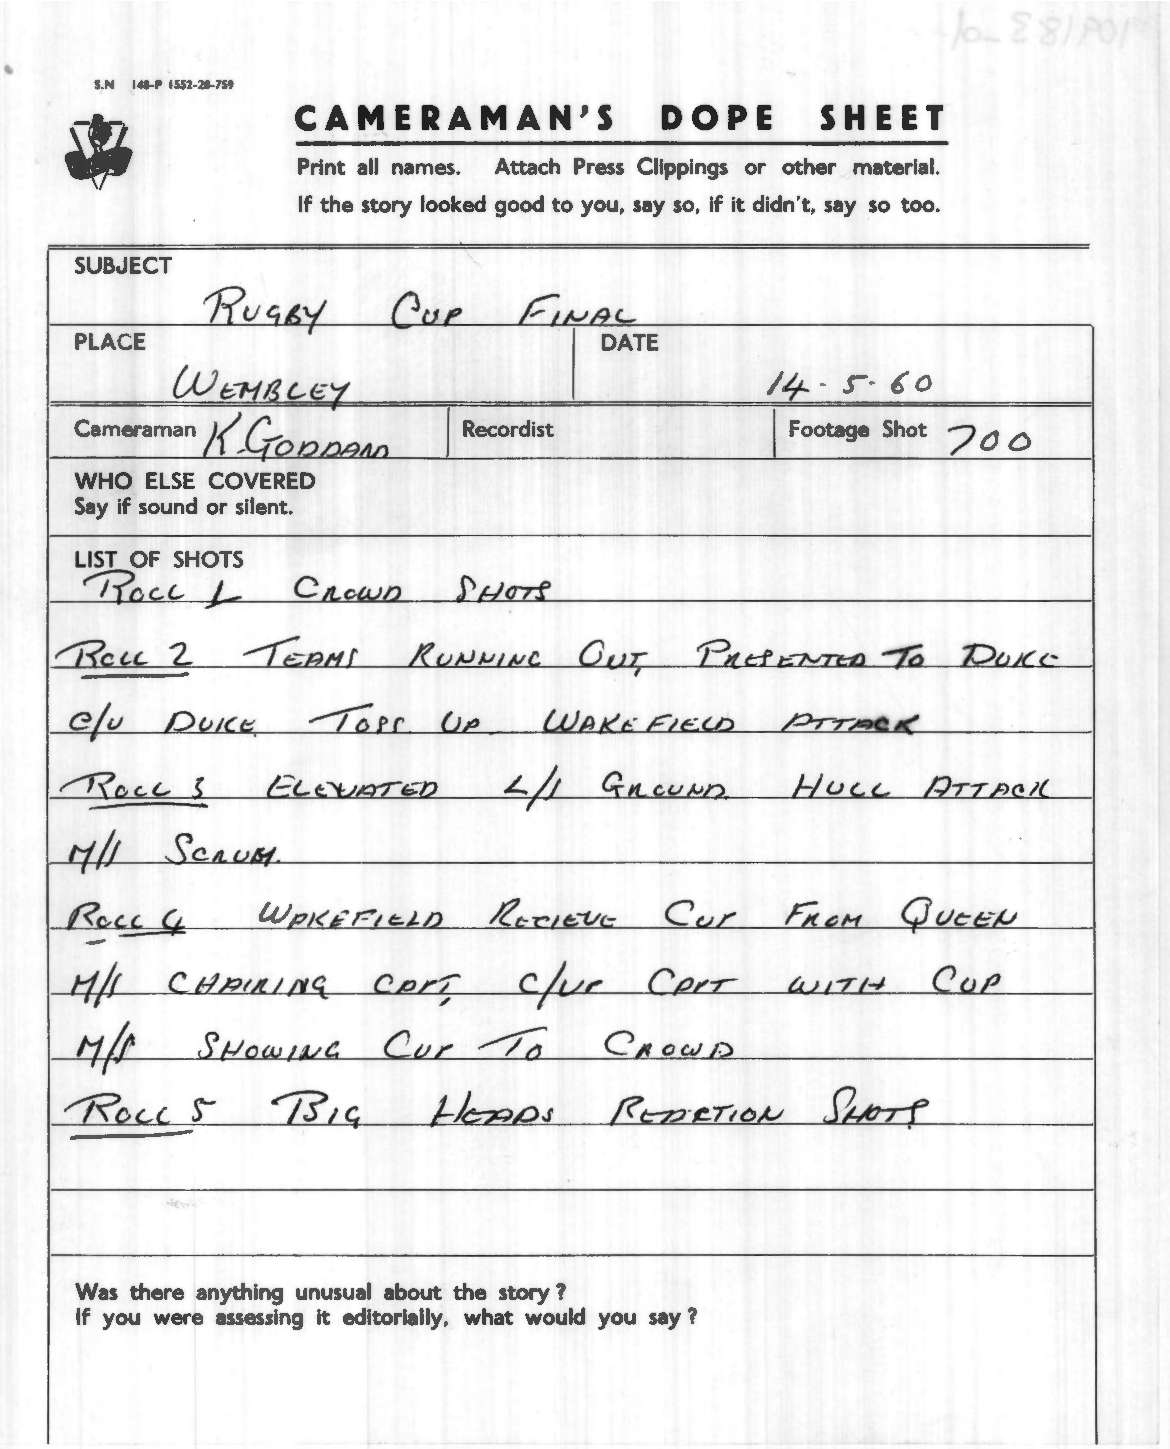 S.N 148-P 1552-28-759
CAMERAMAN'S DOPE SHEET
Print all names. Attach Press Clippings or other material.
If the story looked good to you, say so, if it didn't, say so too.
SUBJECT
RUGBY CUP FINAL
PLACE
DATE
WEMBLEY
14-5-60
Cameraman K. GODDARD
Recordist
Footage Shot 700
WHO ELSE COVERED
Say if sound or silent.
LIST OF SHOTS
ROLL 1 CROWD SHOTS
ROLL 2 TEAMS RUNNING OUT, PRESENTED TO DUKE
C/U DUKE. TOSS UP. WAKEFIELD ATTACK
ROLL 3 ELEVATED L/S GROUND. HULL ATTACK
M/S SCRUM.
ROLL 4 WAKEFIELD RECIEVE CUP FROM QUEEN
M/S CHAIRING CAPT, C/UP CAPT WITH CUP
M/S SHOWING CUP TO CROWD
ROLL 5 BIG HEADS REACTION SHOTS
Was there anything unusual about the story?
If you were assessing it editorially, what would you say?